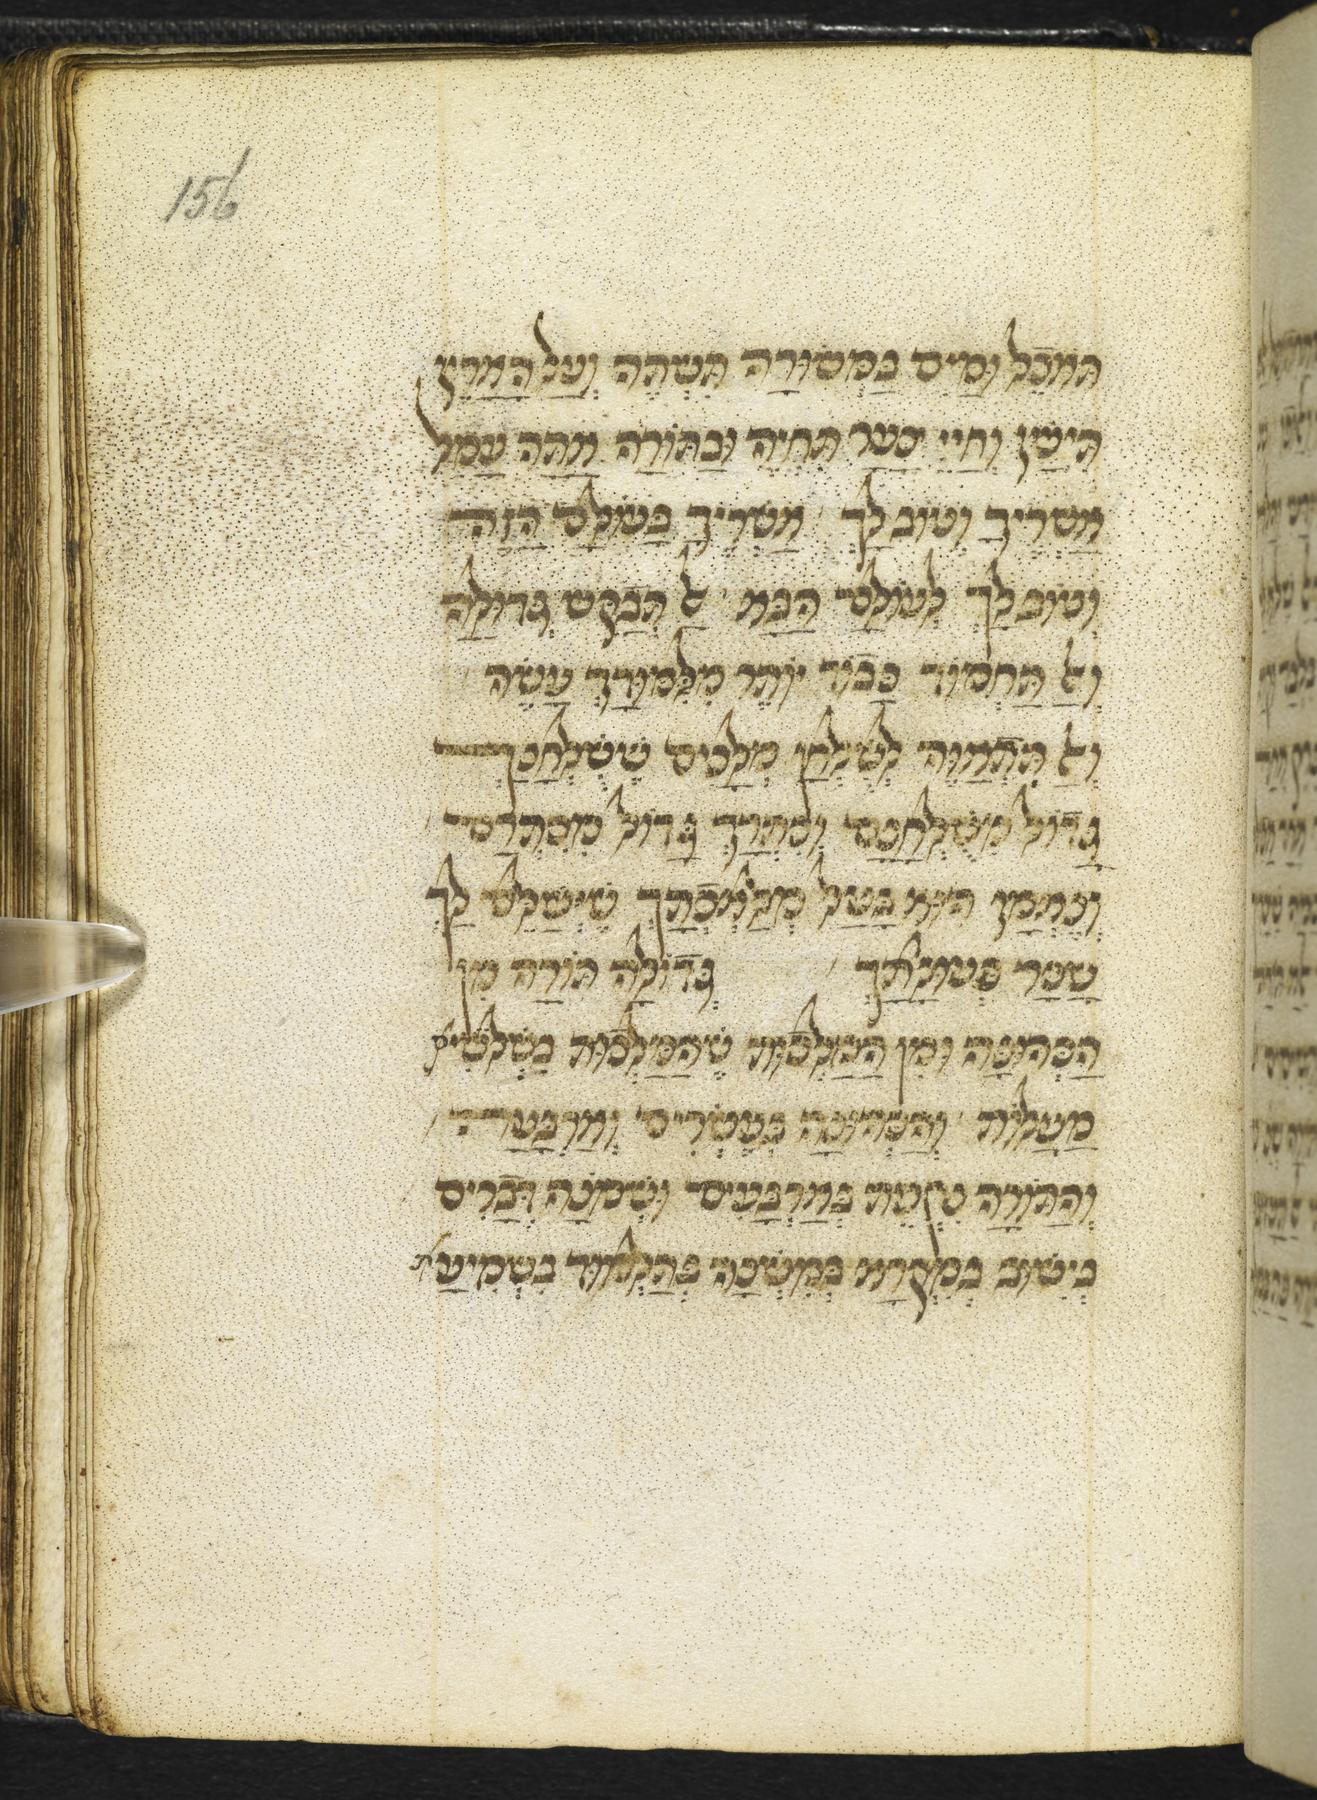 156
תֹּאכֵל וּמַיִם בִּמְשׂוּרָה תִּשְׁתֶּה וְעַל הָאָרֶץ
תִּישַׁן וְחַיֵּי צַעַר תִּחְיֶה וּבַתּוֹרָה אַתָּה עָמֵל
אַשְׁרֶיךָ וְטוֹב לָךְ אַשְׁרֶיךָ בָּעוֹלָם הַזֶּה
וְטוֹב לָךְ לָעוֹלָם הַבָּא אַל תְּבַקֵּשׁ גְּדוּלָּה
וְאַל תַּחְמוֹד כָּבוֹד יוֹתֵר מִלִּמּוּדָךְ עֲשֵׂה
וְאַל תִּתְאַוֶּה לְשֻׁלְחָן מְלָכִים שֶׁשֻּׁלְחָנָךְ
גָּדוֹל מִשֻּׁלְחָנָם וְכִתְרָךְ גָּדוֹל מִכִּתְרָם
וְנֶאֱמָן הוּא בַּעַל מְלַאכְתָּךְ שֶׁיְּשַׁלֵּם לָךְ
שְׂכַר פְּעוּלָּתָךְ גְּדוֹלָה תּוֹרָה מִן
הַכְּהוּנָּה וּמִן הַמַּלְכוּת שֶׁהַמַּלְכוּת בִּשְׁלֹשִׁים
מַעֲלוֹת וְהַכְּהוּנָּה בְּעֶשְׂרִים וְאַרְבָּעָה
וְהַתּוֹרָה נִקְנֵת בְּאַרְבָּעִים וּשְׁמֹנָה דְּבָרִים
בְּיִשּׁוּב בְּמִקְרָא בְּמִשְׁנָה בְּתַלְמוּד בִּשְׁמִיעַת